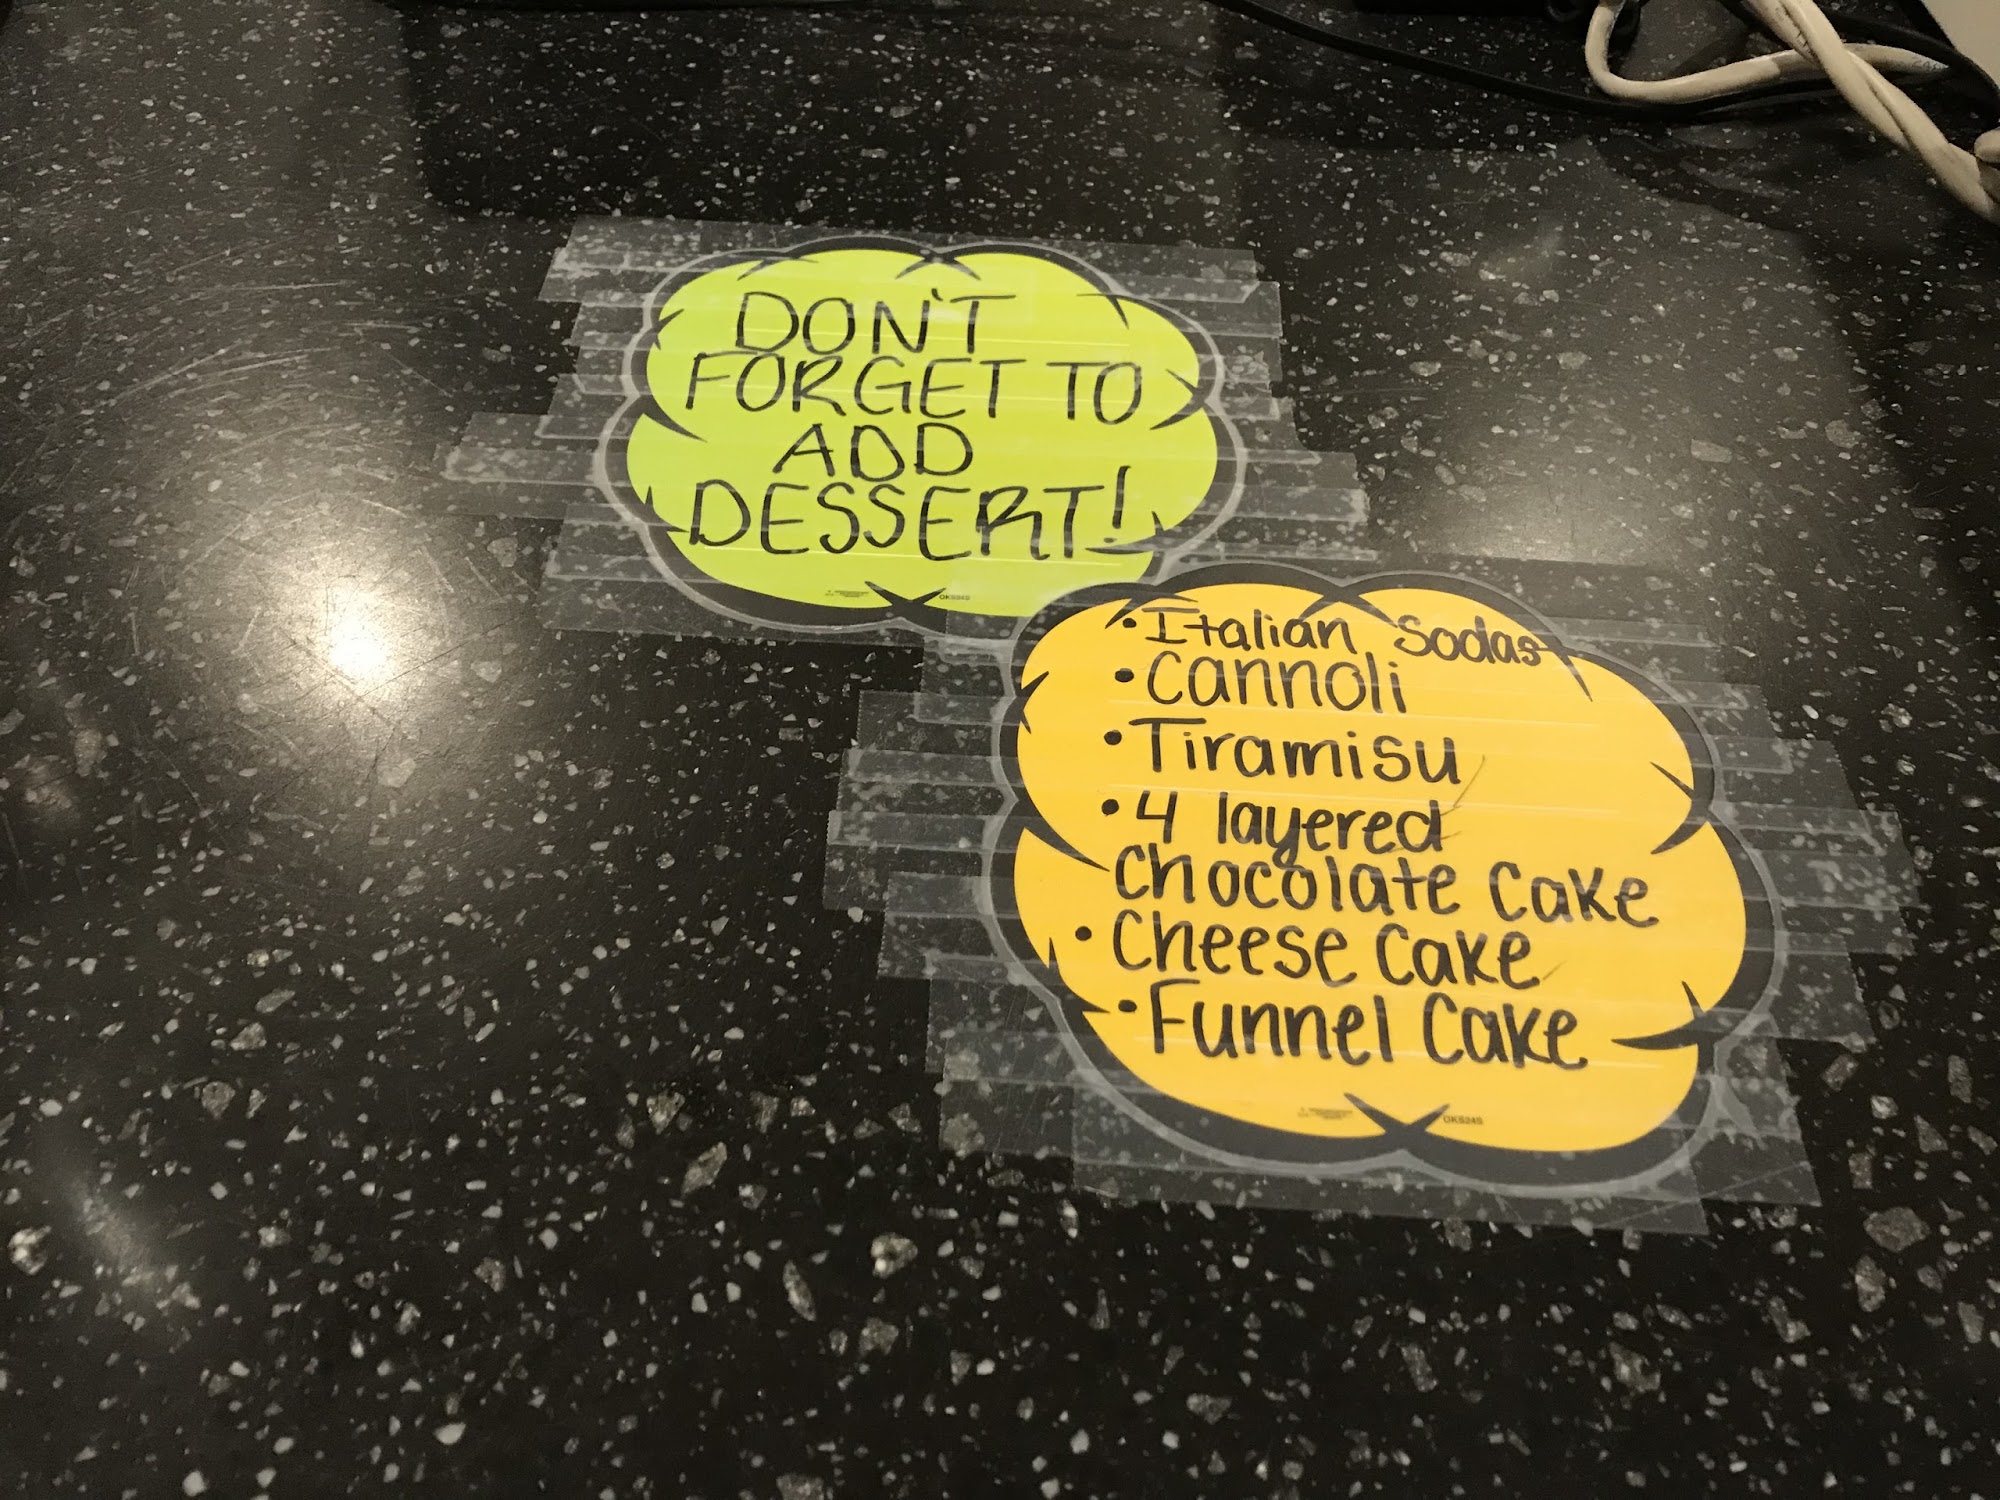 DON'T
FORGET TO
ADD
DESSERT!
OKS24S
• Italian Sodas
• Cannoli
• Tiramisu
• 4 layered
Chocolate Cake
• Cheese Cake
• Funnel Cake
OKS24S